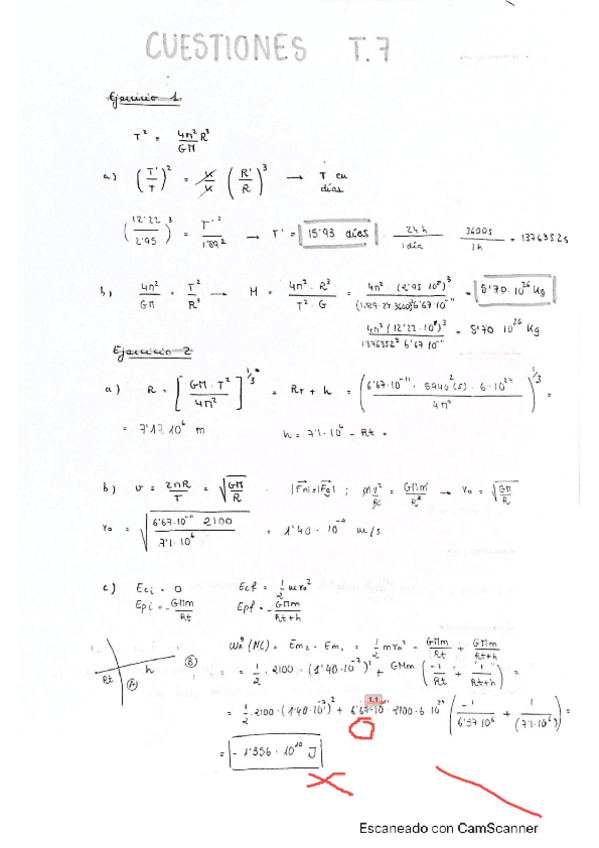 CUESTIONES T.7
Ejercicio 1
T² = 4π²/GM R³
a) (T'/T)² = K/K (R'/R)³ → T en días
(12'22/2'95)³ = T'²/1'89² → T' = 15'93 días · 24h/1día · 3600s/1h = 1376352s
b) 4π²/GM = T²/R³ → M = 4π² · R³/T² · G = 4π² · (2'95 10⁸)³/(1'89·24·3600)²6'67·10⁻¹¹ = 5'70 · 10²⁶ Kg
4π² (12'22 · 10⁸)³/1376352² 6'67 10⁻¹¹ = 5'70 10²⁶ Kg
Ejercicio 2
a) R = [GM · T²/4π²]^1/3 = RT + h = (6'67·10⁻¹¹ · 5940²(s) · 6 · 10²⁴/4π²)^1/3 =
= 7'1 · 10⁶ m h = 7'1 · 10⁶ - Rt =
b) v = 2πR/T = √GM/R |Fn|=|Fg| ; mv²/R = GMm/R² → vo = √GM/R
vo = √6'67·10⁻¹¹ 2100/7'1·10⁶ = 1'40 · 10⁻⁷ m/s
c) Eci = 0 Ecf = 1/2 mvo²
Epi = -GMm/Rt Epf = -GMm/Rt+h
Rt h A B
(NC) = Em2 - Em1 = 1/2 mvo² - GMm/Rt + GMm/Rt+h
= 1/2 · 2100 · (1'40·10⁻⁷)² + GMm (-1/Rt + 1/Rt+h) =
= 1/2 · 2100 · (1'40·10⁻⁷)² + 6'67·10⁻¹¹ · 2100 · 6 10²⁴ (-1/6'37 10⁶ + 1/(7'1·10⁶)) =
= - 1'356 · 10¹⁰ J
Escaneado con CamScanner